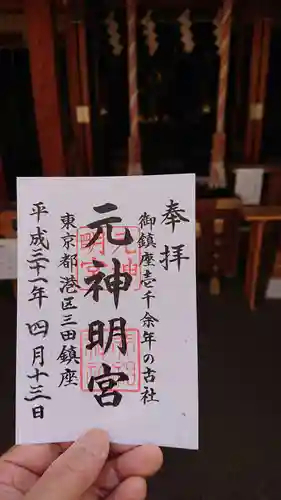 奉拝
御鎮座壱千余年の古社
元神明宮
東京都港区三田鎮座
平成三十一年四月十三日